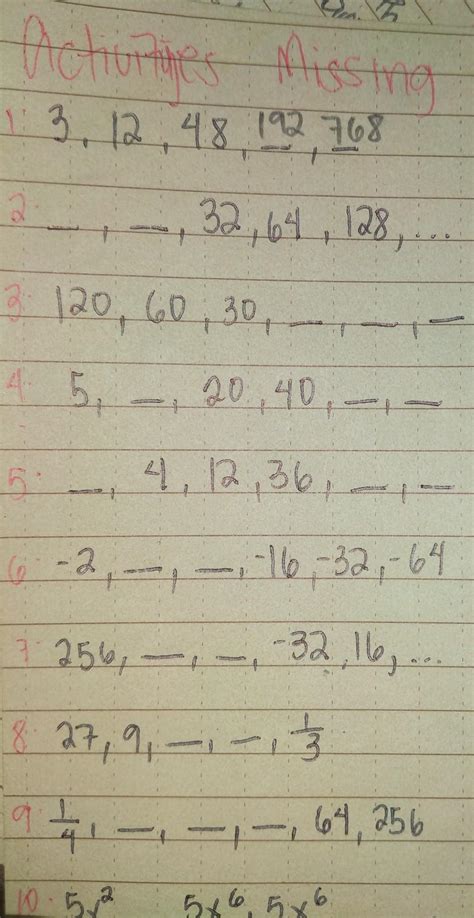 Activities Missing
1 3, 12, 48, 192, 768
2. _, _, 32, 64, 128, ...
3. 120, 60, 30, _, _, _
4. 5, _, 20, 40, _, _
5. _, 4, 12, 36, _, _
6. -2, _, _, -16, -32, -64
7. 256, _, _, -32, 16, ...
8. 27, 9, _, _, 1/3
9. 1/4, _, _, _, 64, 256
10. 5x² 5x⁶, 5x⁶